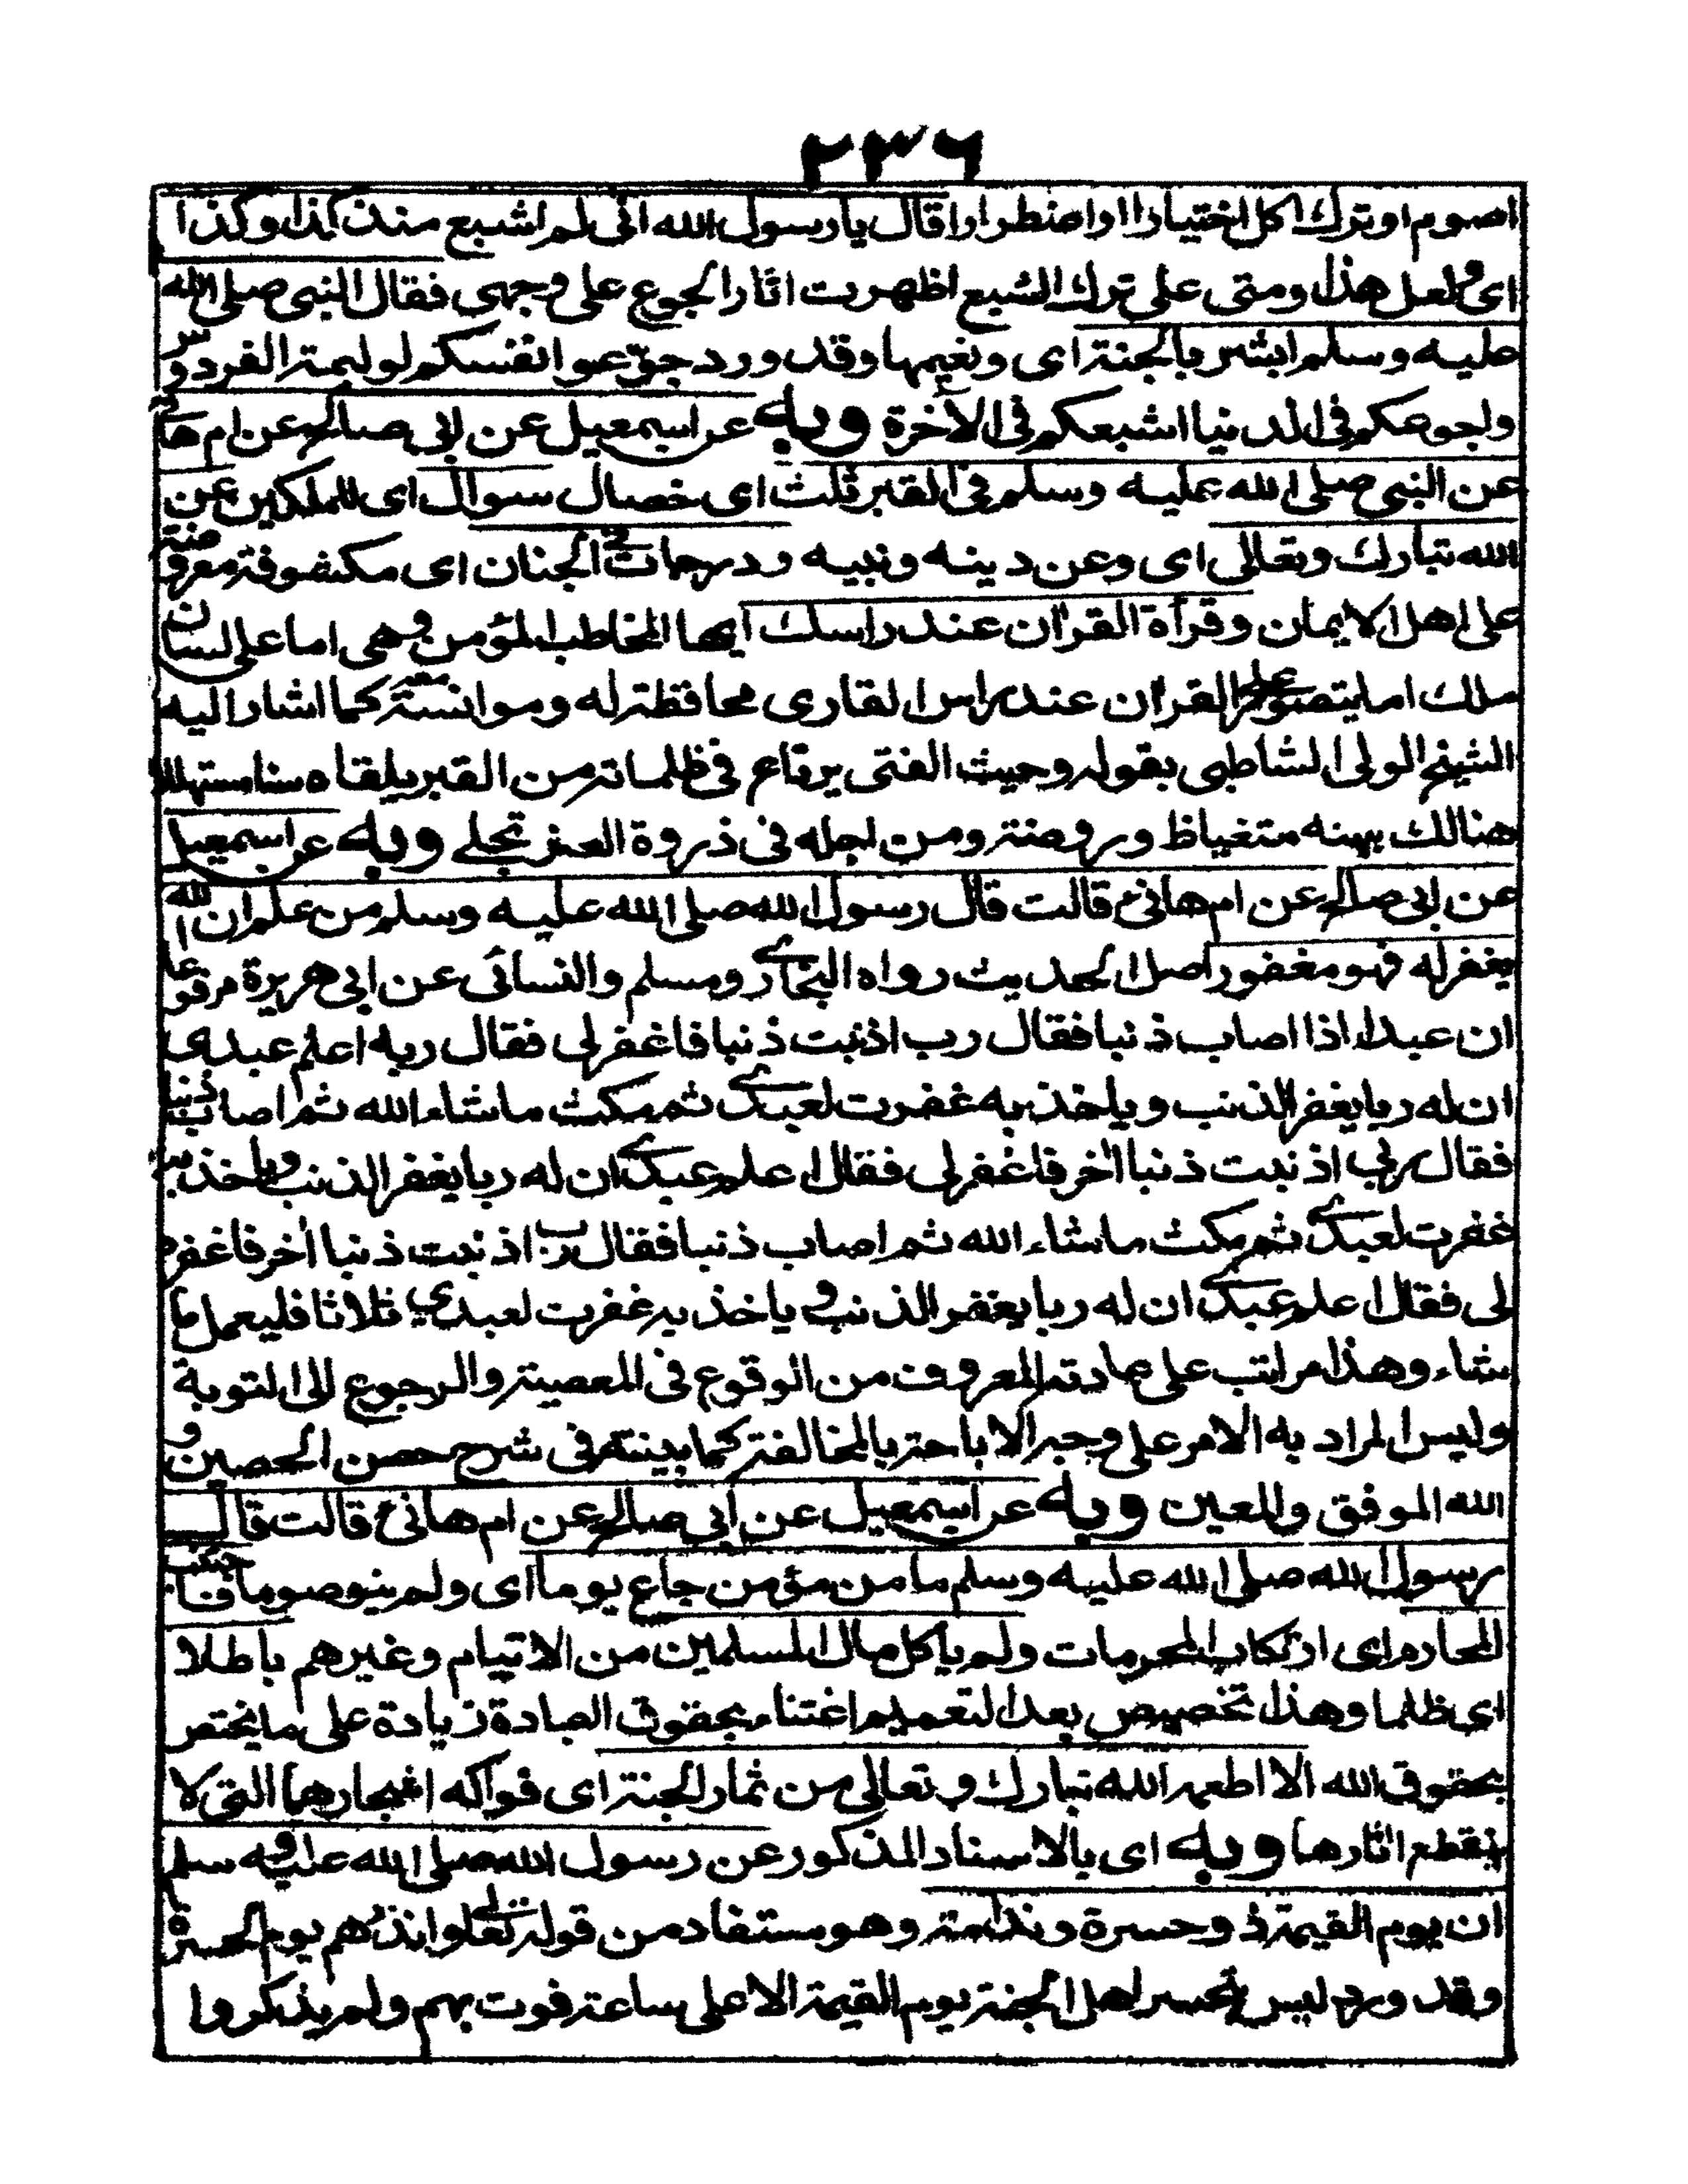 ٢٣٦
اصوم او ترك اكل اختيارا او اضطرارا قال يا رسول الله انى لم اشبع منذ كذا وكذا
اى ولعل هذا ومتى على ترك الشبع اظهرت اثار الجوع على وجهى فقال النبى صلى الله
عليه وسلم ابشر بالجنة اى ونعيمها وقد ورد جوّعوا انفسكم لوليمة الفردوس
ولجوعكم فى الدنيا اشبعكم فى الآخرة وبه عن اسمعيل عن ابى صالح عن ام هانئ
عن النبى صلى الله عليه وسلم فى القبر ثلث اى خصال سوال اى للملكين عن
الله تبارك وتعالى اى وعن دينه ونبيه ودرجات فى الجنان اى مكشوفة معروضة
على اهل الايمان وقرأة القرآن عند راسك ايها المخاطب المؤمن وهى اما على لسان
ملك اما يتصور عمله القرآن عند راس القارى محافظة له وموانسة معه كما اشار اليه
الشيخ الولى الشاطبى بقوله وحيث الفتى يرتاع فى ظلماته من القبر يلقاه سنا متهللا
هنالك يهنه متغياظ وروضة ومن لجله فى ذروة العز تجلے وبه عن اسمعيل
عن ابى صالح عن ام هانئ قالت قال رسول الله صلى الله عليه وسلم من علم ان الله
يغفر له فهو مغفور اصل الحديث رواه البخارى ومسلم والنسائى عن ابى هريرة مرفوعا
ان عبدا اذا اصاب ذنبا فقال رب اذنبت ذنبا فاغفر لى فقال ربه اعلم عبدى
ان له ربا يغفر الذنب وياخذ به غفرت لعبدى ثم مكث ماشاء الله ثم اصاب ذنبا
فقال رب اذنبت ذنبا آخر فاغفر لى فقال ا علم عبدى ان له ربا يغفر الذنب وياخذ به
غفرت لعبدى ثم مكث ماشاء الله ثم اصاب ذنبا فقال رب اذنبت ذنبا آخر فاغفره
لى فقال ا علم عبدى ان له ربا يغفر الذنب و ياخذ به غفرت لعبدى ثلاثا فليعمل ما
شاء وهذا مراتب على عادته المعروف من الوقوع فى المعصية والرجوع الى التوبة
وليس المراد به الامر على وجه الاباحة بالمخالفة كما بينته فى شرح حصن الحصين و
الله الموفق والمعين وبه عن اسمعيل عن ابى صالح عن ام هانئ قالت قال
رسول الله صلى الله عليه وسلم ما من مؤمن جاع يوما اى ولم ينو صوما فاجتنب
المحارم اى ارتكاب المحرمات ولم ياكل مال المسلمين من الايتام وغيرهم باطلا
اى ظلما وهذا تخصيص بعد التعميم اعتناء بحقوق العبادة زيادة على ما يختص
بحقوق الله الا اطعمه الله تبارك وتعالى من ثمار الجنة اى فواكه اشجارها التى لا
ينقطع اثارها وبه اى بالاسناد المذكور عن رسول الله صلى الله عليه وسلم
ان يوم القيمة ذو حسرة وندامة وهو مستفاد من قوله تعالى وانذرهم يوم الحسرة
وقد ورد ليس يتحسر اهل الجنة يوم القيمة الا على ساعة فوت بهم ولم يذكروا